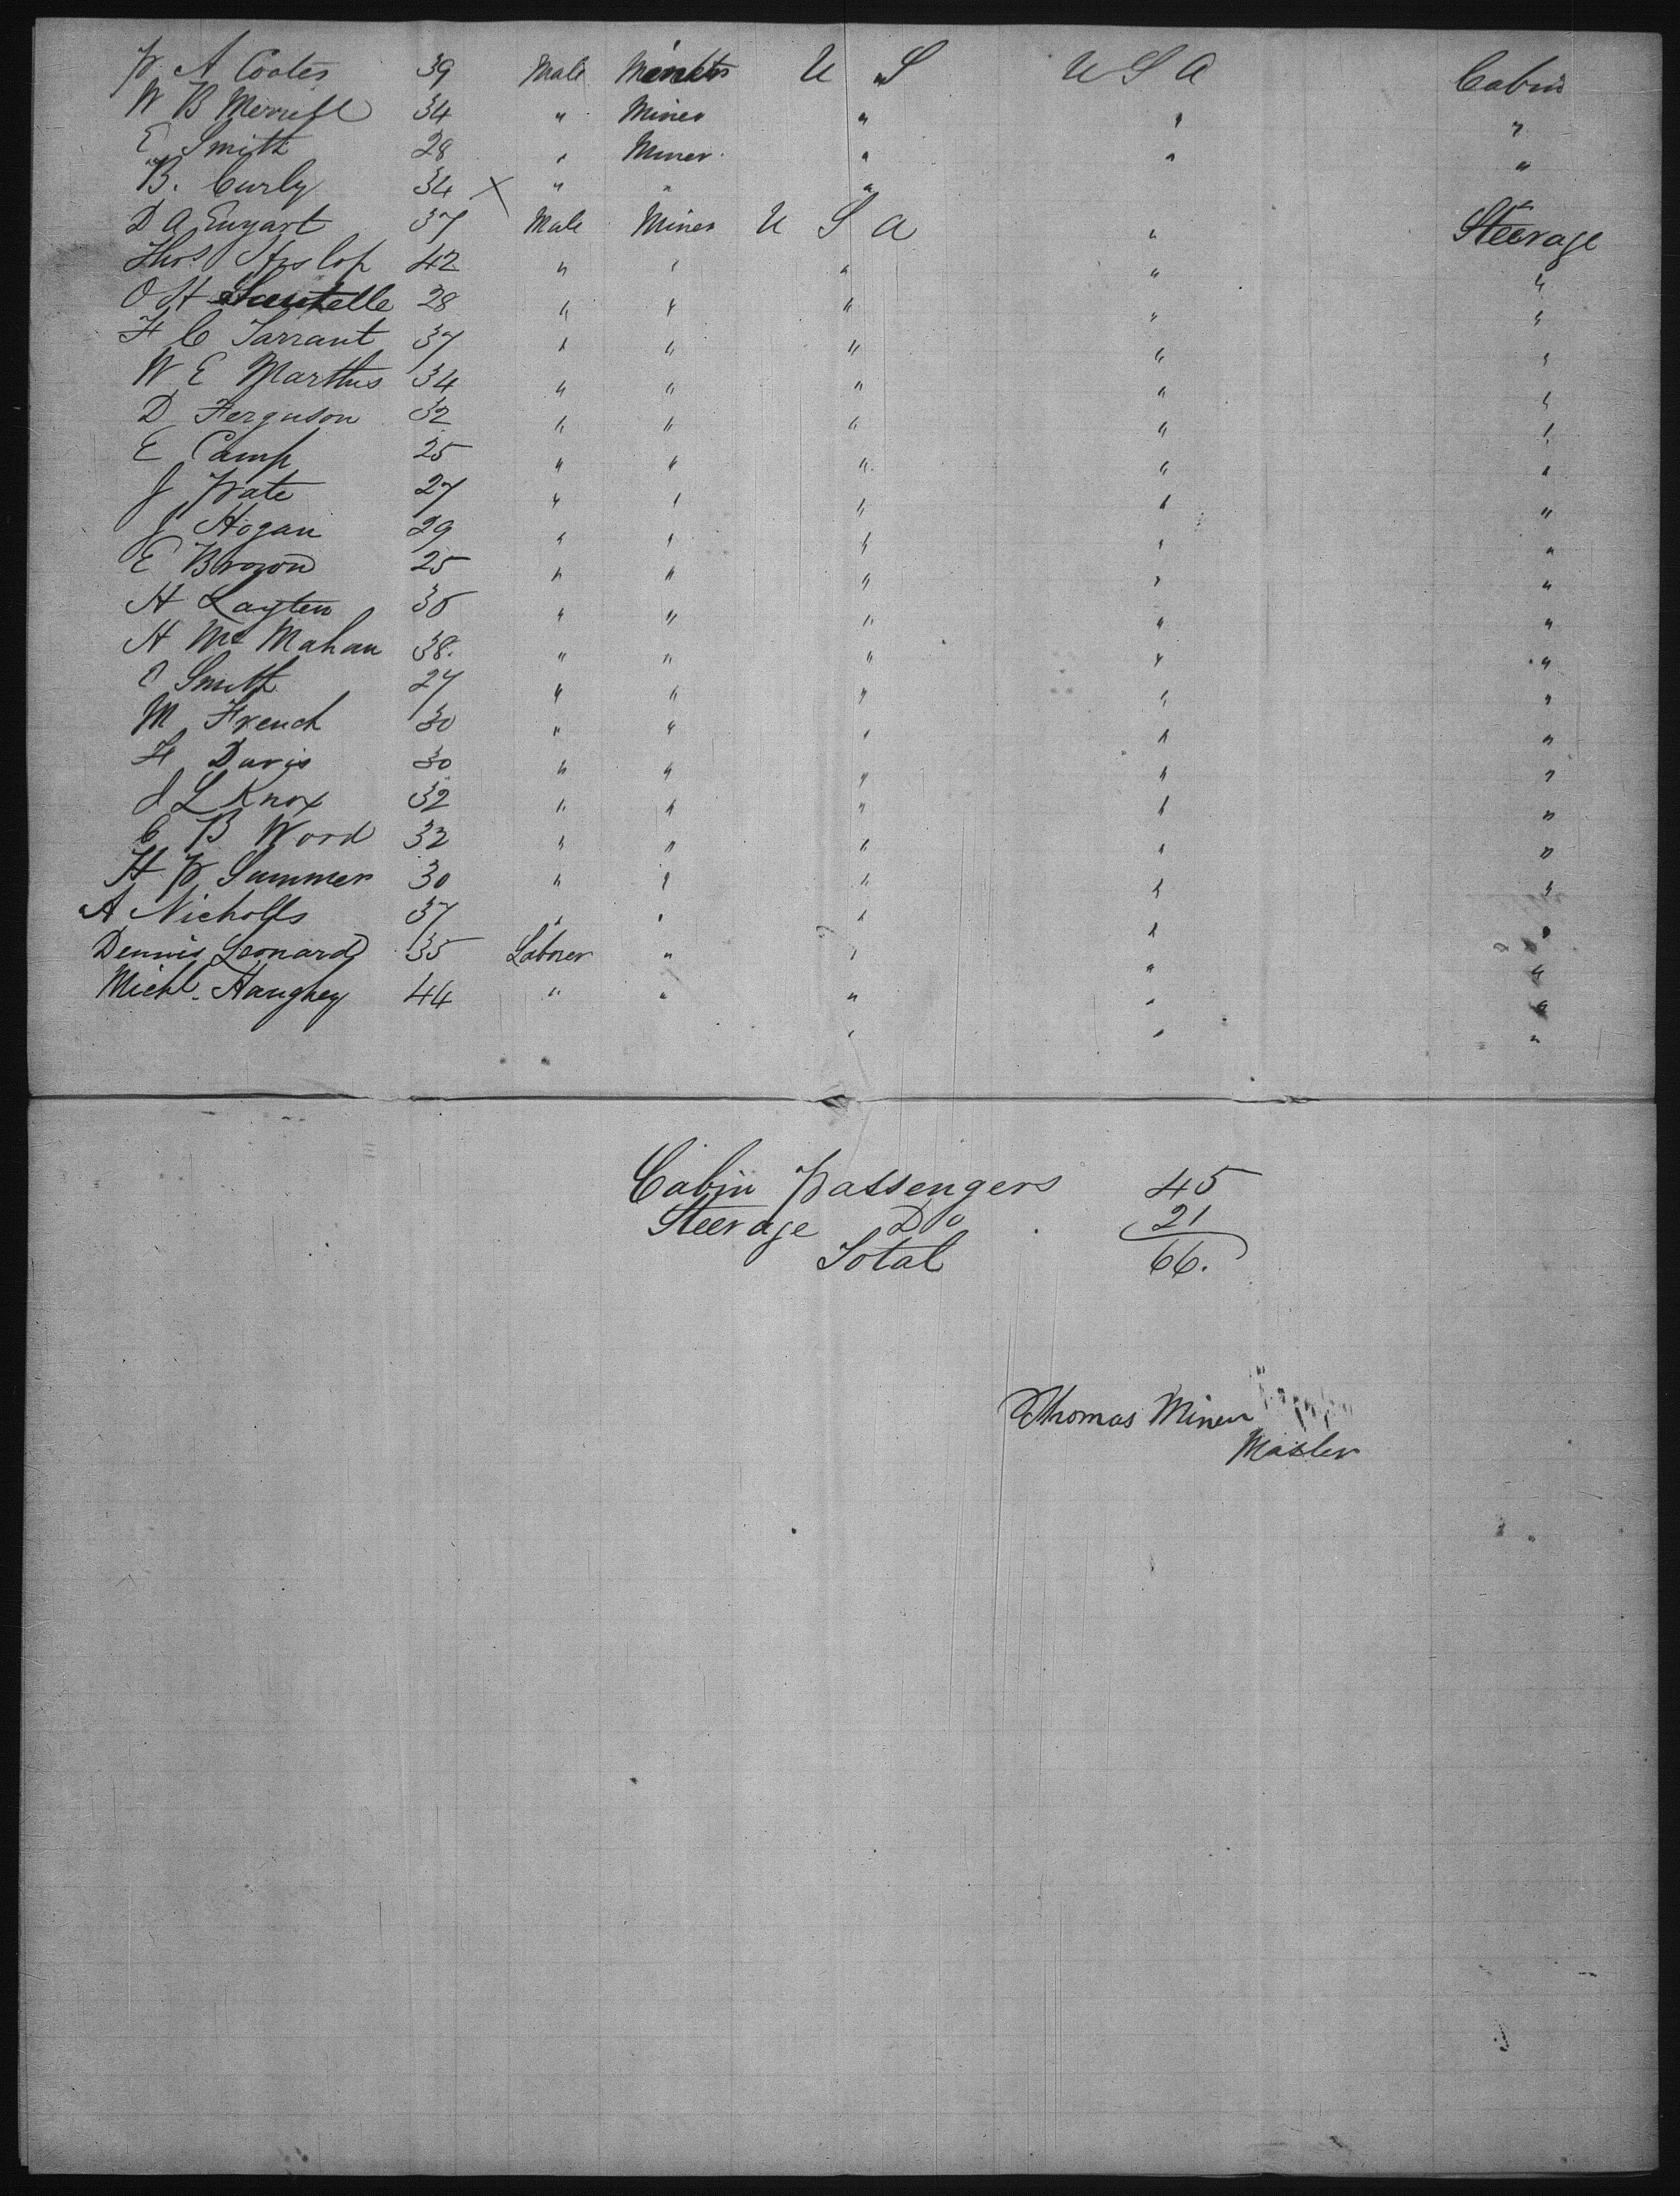 P. A Coates 39 Male U S U S A Cabin
W B Merrill 34 " Miner " " "
E Smith 28 " Miner " " "
B. Curly 34 X " " " "
D A Enyart 37 Male Miner U S A " Steerage
Thos Hyslop 42 " " " " "
O H 28 " " " " "
F C Tarrant 37 " " " " "
W E 34 " " " " "
D Ferguson 32 " " " " "
E Camp 25 " " " " "
J Pate 27 " " " " "
J Hogan 29 " " " " "
E Brown 25 " " " " "
H Layten " " " " "
H Mc Mahan 38. " " " " "
Smith 27 " " " " "
M French 30 " " " " "
H Davis 30 " " " " "
J L Knox 32 " " " " "
C B Word 32 " " " " "
H P Summer 30 " " " " "
A Nicholls 37 " " " " "
Dennis Leonard 35 Laborer " " " "
Michl. Haughey 44 " " " " "
" " "
Cabin Passengers 45
Steerage Do 21
Total 66.
Thomas Miner
Master